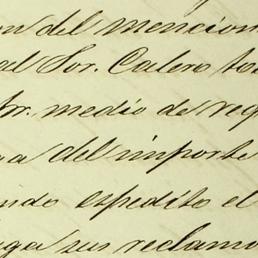 on del mencion
al Sor. Calero to
por medio de req
ga del importe
endo espedito el
ega sus reclamo